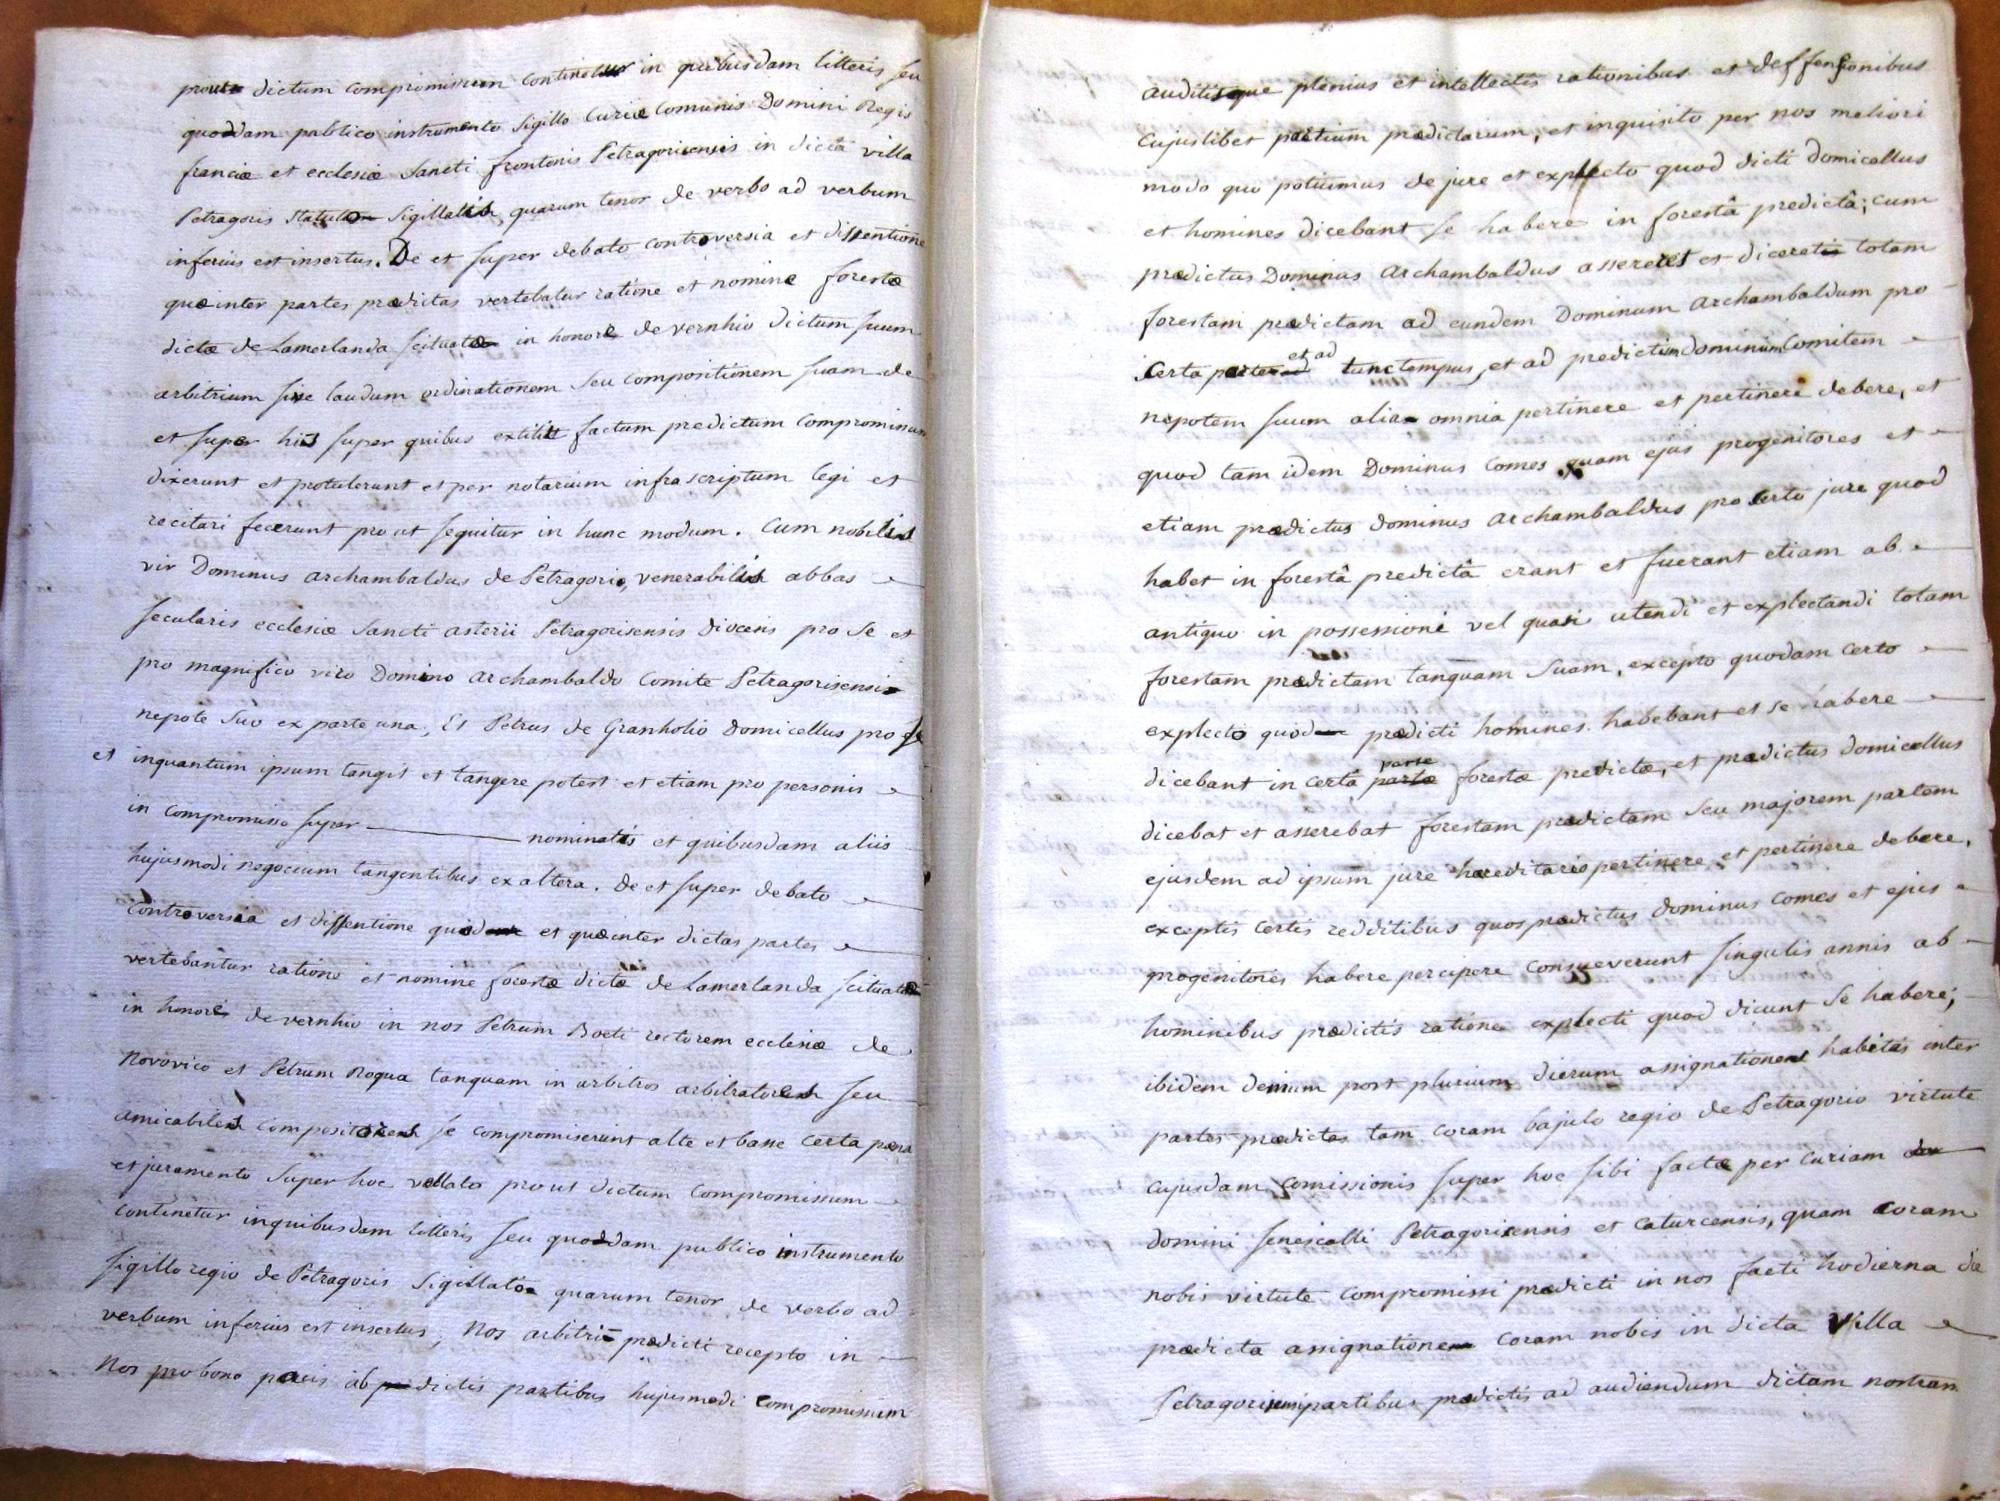 prout dictum compromissum continetur in quibusdam litteris seu
quoddam publico instrumento sigillo Curiæ Comunis Domini Regis
franciæ et ecclesiæ Sancti frontonis Petragoricensis in dicta villa
Petragoris statuto sigillatis, quarum tenor de verbo ad verbum
inferius est insertus. De et super debato controversia et dissentione
quæ inter partes prædictas vertebatur ratione et nomine forestæ
dictæ de Lamerlanda scituatæ in honore de vernhio dictum suum
arbitrium sive laudum ordinationem seu compositionem suam de
et super his super quibus extitit factum predictum compromissum
dixerunt et protulerunt et per notarium infrascriptum legi et
recitari fecerunt prout sequitur in hunc modum. Cum nobilis
vir Dominus Archambaldus de Petragorio, venerabilis abbas
secularis ecclesiæ Sancti Asterii Petragorisensis diocesis pro se et
pro magnifico viro Domino Archambaldo Comite Petragorisensi
nepote suo ex parte una, Et Petrus de Granholio Domicellus pro se
et inquantum ipsum tangit et tangere potest et etiam pro personis
in compromisso super nominatis et quibusdam aliis
hujusmodi negocium tangentibus ex altera. De et super debato
controversia et dissentione quod et quæ inter dictas partes
vertebantur ratione et nomine forestæ dictæ de Lamerlanda scituatæ
in honore de vernhio in nos Petrum Boeti rectorem ecclesiæ de
Novovico et Petrum Roqua tanquam in arbitros arbitratores seu
amicabiles compositores se compromiserint alte et basse certa pæna
et juramento super hoc vallato prout dictum compromissum
continetur in quibusdam litteris seu quoddam publico instrumento
sigillo regio de Petragoris sigillato quarum tenor de verbo ad
verbum inferius est insertus, Nos arbitri prædicti recepto in
Nos pro bono pacis ab dictis partibus hujusmodi compromissum
auditisque plenius et intellectis rationibus et deffensionibus
cujuslibet partium prædictarum, et inquisito per nos meliori
modo quo potuimus de jure et explecto quod dicti domicellus
et homines dicebant se habere in forestâ predictâ; cum
prædictus Dominus Archambaldus assereret et diceret totam
forestam prædictam ad eundem Dominum Archambaldum pro
certa parte et ad tunc tempus, et ad predictum dominum Comitem
nepotem suum alias omnia pertinere et pertinere debere, et
quod tam idem Dominus Comes quam ejus progenitores et
etiam prædictus dominus Archambaldus pro certo jure quod
habet in forestâ predictâ erant et fuerant etiam ab
antiquo in possessione vel quasi utendi et explectandi totam
forestam prædictam tanquam suam, excepto quodam certo
explecto quod prædicti homines habebant et se habere
dicebant in certa parte forestæ predictæ, et prædictus domicellus
dicebat et asserebat forestam prædictam seu majorem partem
ejusdem ad ipsum jure hæreditario pertinere et pertinere debere,
exceptis certis redditibus quos prædictus dominus comes et ejus
progenitores habere percipere consueverunt singulis annis ab
hominibus prædictis ratione explecti quod dicunt se habere,
ibidem demum post plurium dierum assignationes habitas inter
partes prædictas tam coram bajulo regio de Petragorio virtute
cujusdam comissionis super hoc sibi factæ per curiam
domini senescalli Petragoricensis et Caturcensis, quam coram
nobis virtute compromissi prædicti in nos facti hodierna die
prædicta assignatione coram nobis in dicta villa
Petragoris partibus prædictis ad audiendum dictam nostram